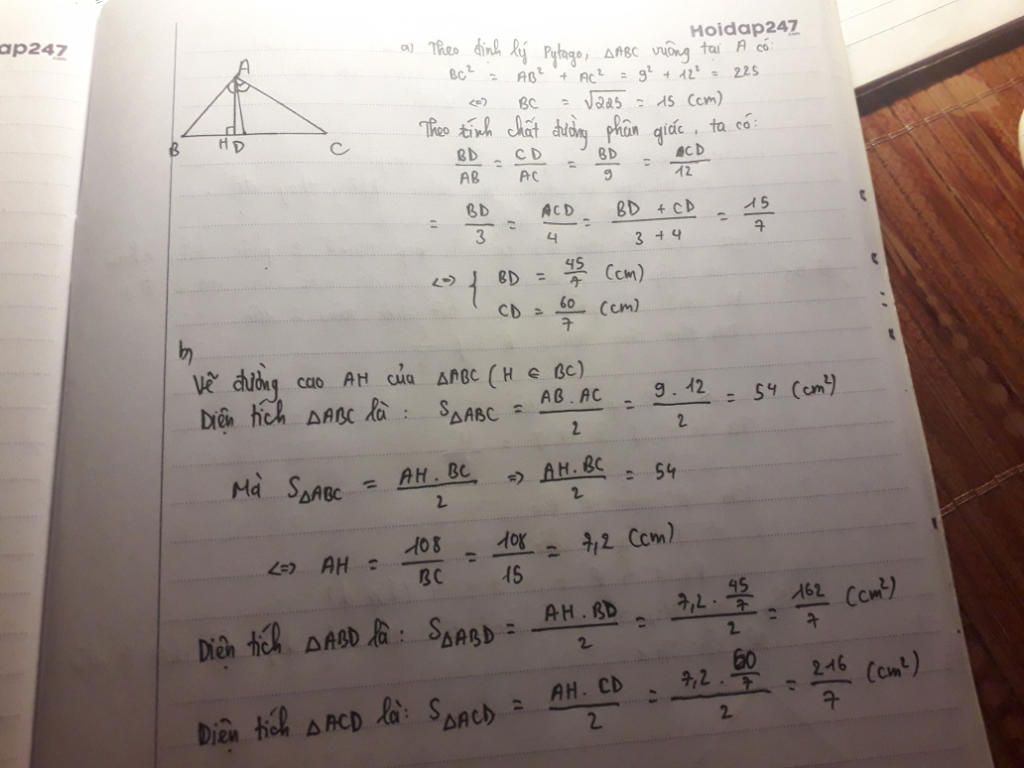 ap247
Hoidap247
A
B H D C
a) Theo định lý Pytago, △ABC vuông tại A có:
BC² = AB² + AC² = 9² + 12² = 225
<=> BC = √225 = 15 (cm)
Theo tính chất đường phân giác, ta có:
BD/AB = CD/AC = BD/9 = CD/12
= BD/3 = CD/4 = (BD + CD)/(3 + 4) = 15/7
<=> { BD = 45/7 (cm)
CD = 60/7 (cm)
b)
Vẽ đường cao AH của △ABC (H ∈ BC)
Diện tích △ABC là: S△ABC = (AB . AC)/2 = (9 . 12)/2 = 54 (cm²)
Mà S△ABC = (AH . BC)/2 => (AH . BC)/2 = 54
<=> AH = 108/BC = 108/15 = 7,2 (cm)
Diện tích △ABD là: S△ABD = (AH . BD)/2 = (7,2 . 45/7)/2 = 162/7 (cm²)
Diện tích △ACD là: S△ACD = (AH . CD)/2 = (7,2 . 60/7)/2 = 216/7 (cm²)